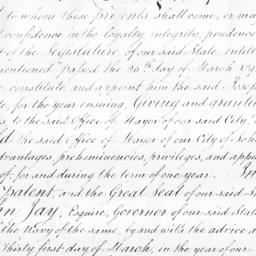 to whom these presents shall come, or may
confidence in the loyalty, integrity, prudence
of the Legislature of our said State, entitled
mentioned" passed the 30th day of March 179
constitute and appoint him the said Joseph
, for the year ensuing, Giving and granting
to the said Office of Mayor of our said City,
the said Office of Mayor of our City of
advantages, preheminencies, privileges, and
of, for and during the term of one year. In
patent, and the Great Seal of our said
Jay, Esquire, Governor of our said State
the Navy of the same, by and with the advice
Thirty first day of March, in the year of our